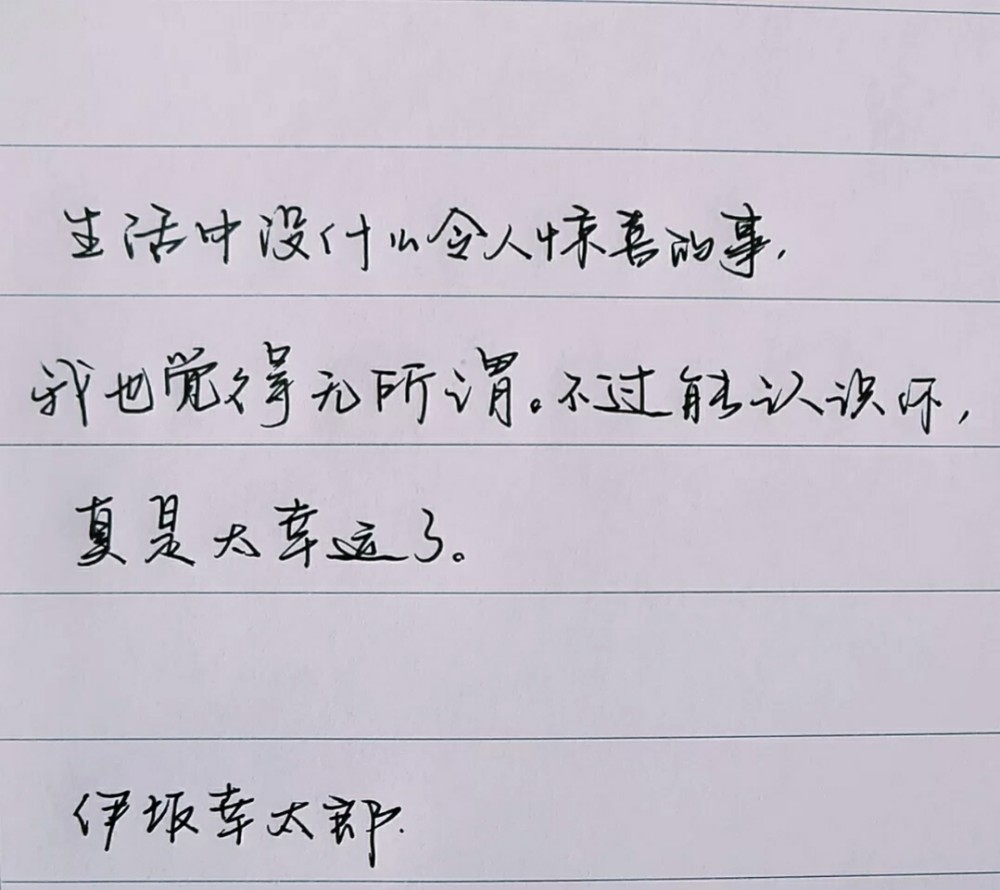 生活中没什么令人惊喜的事,
我也觉得无所谓。不过能认识你,
真是太幸运了。
伊坂幸太郎.